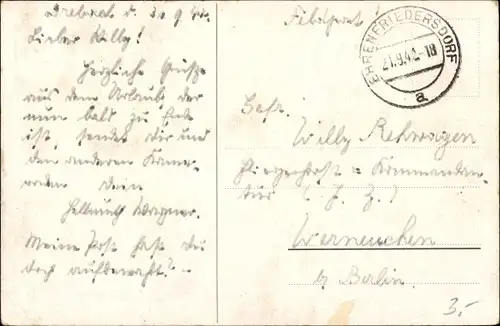 Drebach d. 20 9 42.
Lieber Willy!
Herzliche Grüße
aus dem Urlaub der
nun bald zu Ende
ist, sendet dir und
den anderen Kame-
raden dein
Hellmuth Wagner.
Meine Post hast du
doch aufbewahrt? -
Feldpost!
EHRENFRIEDERSDORF
21.9.42-18
a
Gefr.
Willy Rehwagen
Fliegerhorst = Kommandan-
tur
Werneuchen
b/ Berlin
3.-